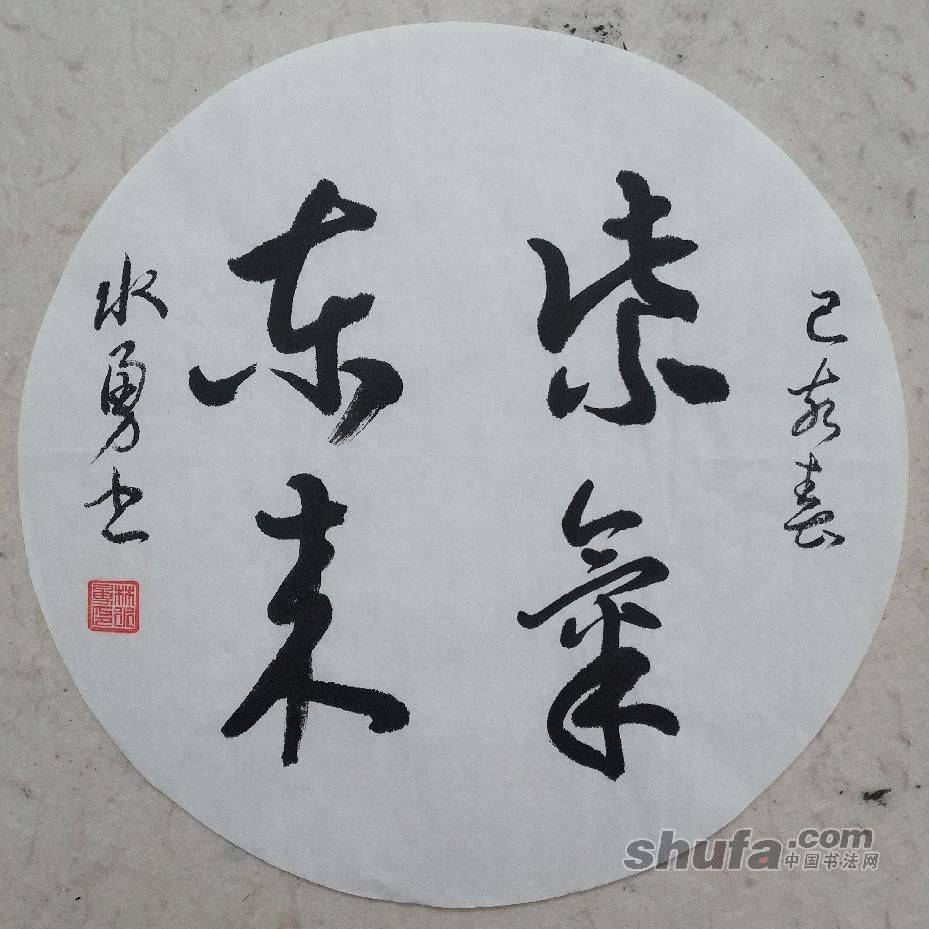 己亥春
紫氣
東来
水勇书
shufa.com
中国书法网